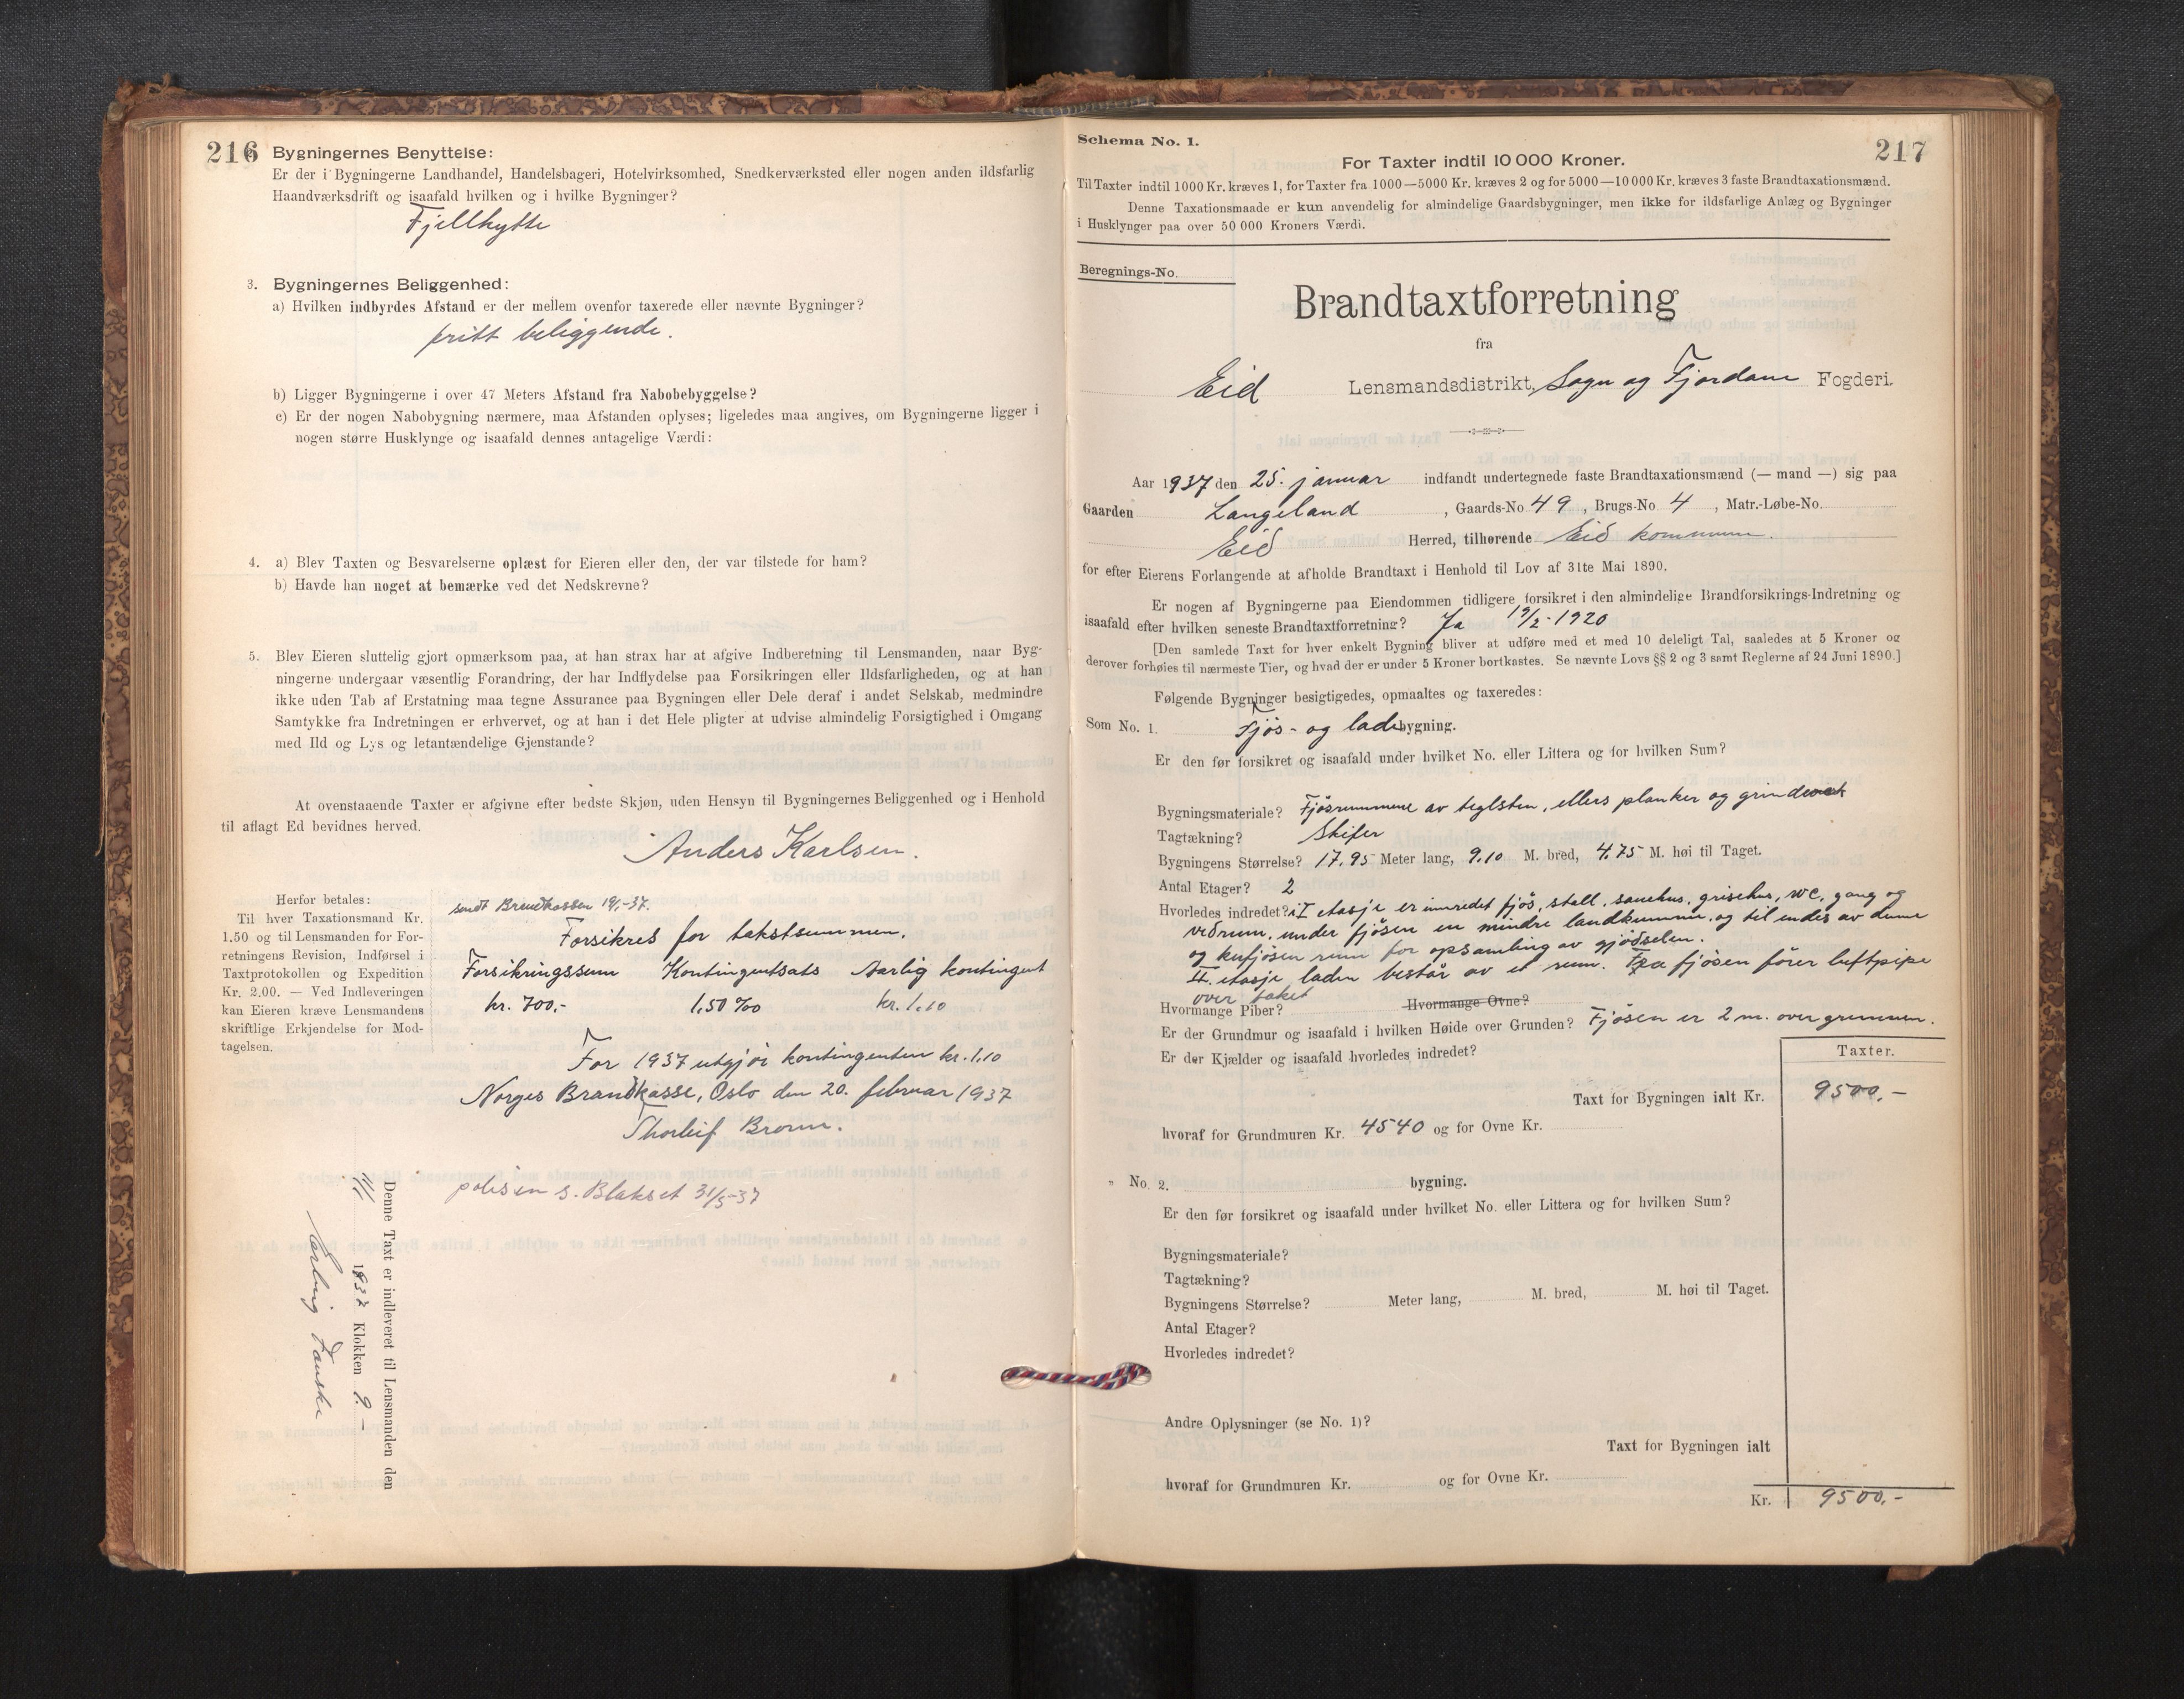 216
Bygningernes Benyttelse:
Er der i Bygningerne Landhandel, Handelsbageri, Hotelvirksomhed, Snedkerværksted eller nogen anden ildsfarlig
Haandværksdrift og isaafald hvilken og i hvilke Bygninger?
Fjellhytte
3. Bygningernes Beliggenhed:
a) Hvilken indbyrdes Afstand er der mellem ovenfor taxerede eller nævnte Bygninger?
fritt beliggende.
b) Ligger Bygningerne i over 47 Meters Afstand fra Nabobebyggelse?
c) Er der nogen Nabobygning nærmere, maa Afstanden oplyses; ligeledes maa angives, om Bygningerne ligger i
nogen større Husklynge og isaafald dennes antagelige Værdi:
4. a) Blev Taxten og Besvarelserne oplæst for Eieren eller den, der var tilstede for ham?
b) Havde han noget at bemærke ved det Nedskrevne?
5. Blev Eieren sluttelig gjort opmærksom paa, at han strax har at afgive Indberetning til Lensmanden, naar Byg-
ningerne undergaar væsentlig Forandring, der har Indflydelse paa Forsikringen eller Ildsfarligheden, og at han
ikke uden Tab af Erstatning maa tegne Assurance paa Bygningen eller Dele deraf i andet Selskab, medmindre
Samtykke fra Indretningen er erhvervet, og at han i det Hele pligter at udvise almindelig Forsigtighed i Omgang
med Ild og Lys og letantændelige Gjenstande?
At ovenstaaende Taxter er afgivne efter bedste Skjøn, uden Hensyn til Bygningernes Beliggenhed og i Henhold
til aflagt Ed bevidnes herved.
Anders Karlsen.
Herfor betales:
Til hver Taxationsmand Kr.
1.50 og til Lensmanden for For-
retningens Revision, Indførsel i
Taxtprotokollen og Expedition
Kr. 2.00. — Ved Indleveringen
kan Eieren kræve Lensmandens
skriftlige Erkjendelse for Mod-
tagelsen.
sendt Brendkassen 19/1-37.
Forsikres for takstsummen.
Forsikringssum Kontingentsats Aarlig kontingent
kr. 700,- 1,50 ‰ kr. 1.10
For 1937 utgjør kontingenten kr. 1.10
Norges Brandkasse, Oslo den 20. februar 1937
Thorleif Brown.
polisen s. Blakset 31/5-37
Denne Taxt er indleveret til Lensmanden den
1937 Klokken 9.-
217
Schema No. 1.
For Taxter indtil 10 000 Kroner.
Til Taxter indtil 1000 Kr. kræves 1, for Taxter fra 1000—5000 Kr. kræves 2 og for 5000—10 000 Kr. kræves 3 faste Brandtaxationsmænd.
Denne Taxationsmaade er kun anvendelig for almindelige Gaardsbygninger, men ikke for ildsfarlige Anlæg og Bygninger
i Husklynger paa over 50 000 Kroners Værdi.
Beregnings-No.
Brandtaxtforretning
fra
Eid Lensmandsdistrikt, Sogn og Fjordane Fogderi.
Aar 1937 den 25. januar indfandt undertegnede faste Brandtaxationsmænd (— mand —) sig paa
Gaarden Langeland, Gaards-No 49, Brugs-No 4, Matr.-Løbe-No.
Eid Herred, tilhørende Eid kommune.
for efter Eierens Forlangende at afholde Brandtaxt i Henhold til Lov af 31te Mai 1890.
Er nogen af Bygningerne paa Eiendommen tidligere forsikret i den almindelige Brandforsikrings-Indretning og
isaafald efter hvilken seneste Brandtaxtforretning? Ja 19/2-1920
[Den samlede Taxt for hver enkelt Bygning bliver at udføre med et med 10 deleligt Tal, saaledes at 5 Kroner og
derover forhøies til nærmeste Tier, og hvad der er under 5 Kroner bortkastes. Se nævnte Lovs §§ 2 og 3 samt Reglerne af 24 Juni 1890.]
Følgende Bygninger besigtigedes, opmaaltes og taxeredes:
Som No. 1. Fjøs- og ladebygning.
Er den før forsikret og isaafald under hvilket No. eller Littera og for hvilken Sum?
Bygningsmateriale? Fjøsrummene av teglsten, ellers planker og grindverk
Tagtækning? Skifer
Bygningens Størrelse? 17.95 Meter lang, 9.10 M. bred, 4.75 M. høi til Taget.
Antal Etager? 2
Hvorledes indredet? i I etasje er innredet fjøs, stall, sauehus, grisehus, WC, gang og
vedrum, under fjøsen en mindre landkumme, og til endes av denne
og kufjøsen rum for opsamling av gjødselen.
II. etasje laden består av et rum. Fra fjøsen fører luftpipe
over taket
Hvormange Piber? Hvormange Ovne?
Er der Grundmur og isaafald i hvilken Høide over Grunden? Fjøsen er 2 m. over grunnen.
Er der Kjælder og isaafald hvorledes indredet?
Taxter.
Taxt for Bygningen ialt Kr. 9500.-
hvoraf for Grundmuren Kr. 4540 og for Ovne Kr.
" No. 2. bygning.
Er den før forsikret og isaafald under hvilket No. eller Littera og for hvilken Sum?
Bygningsmateriale?
Tagtækning?
Bygningens Størrelse? Meter lang, M. bred, M. høi til Taget.
Antal Etager?
Hvorledes indredet?
Andre Oplysninger (se No. 1)?
Taxt for Bygningen ialt
hvoraf for Grundmuren Kr. og for Ovne Kr.
Kr. 9500.-